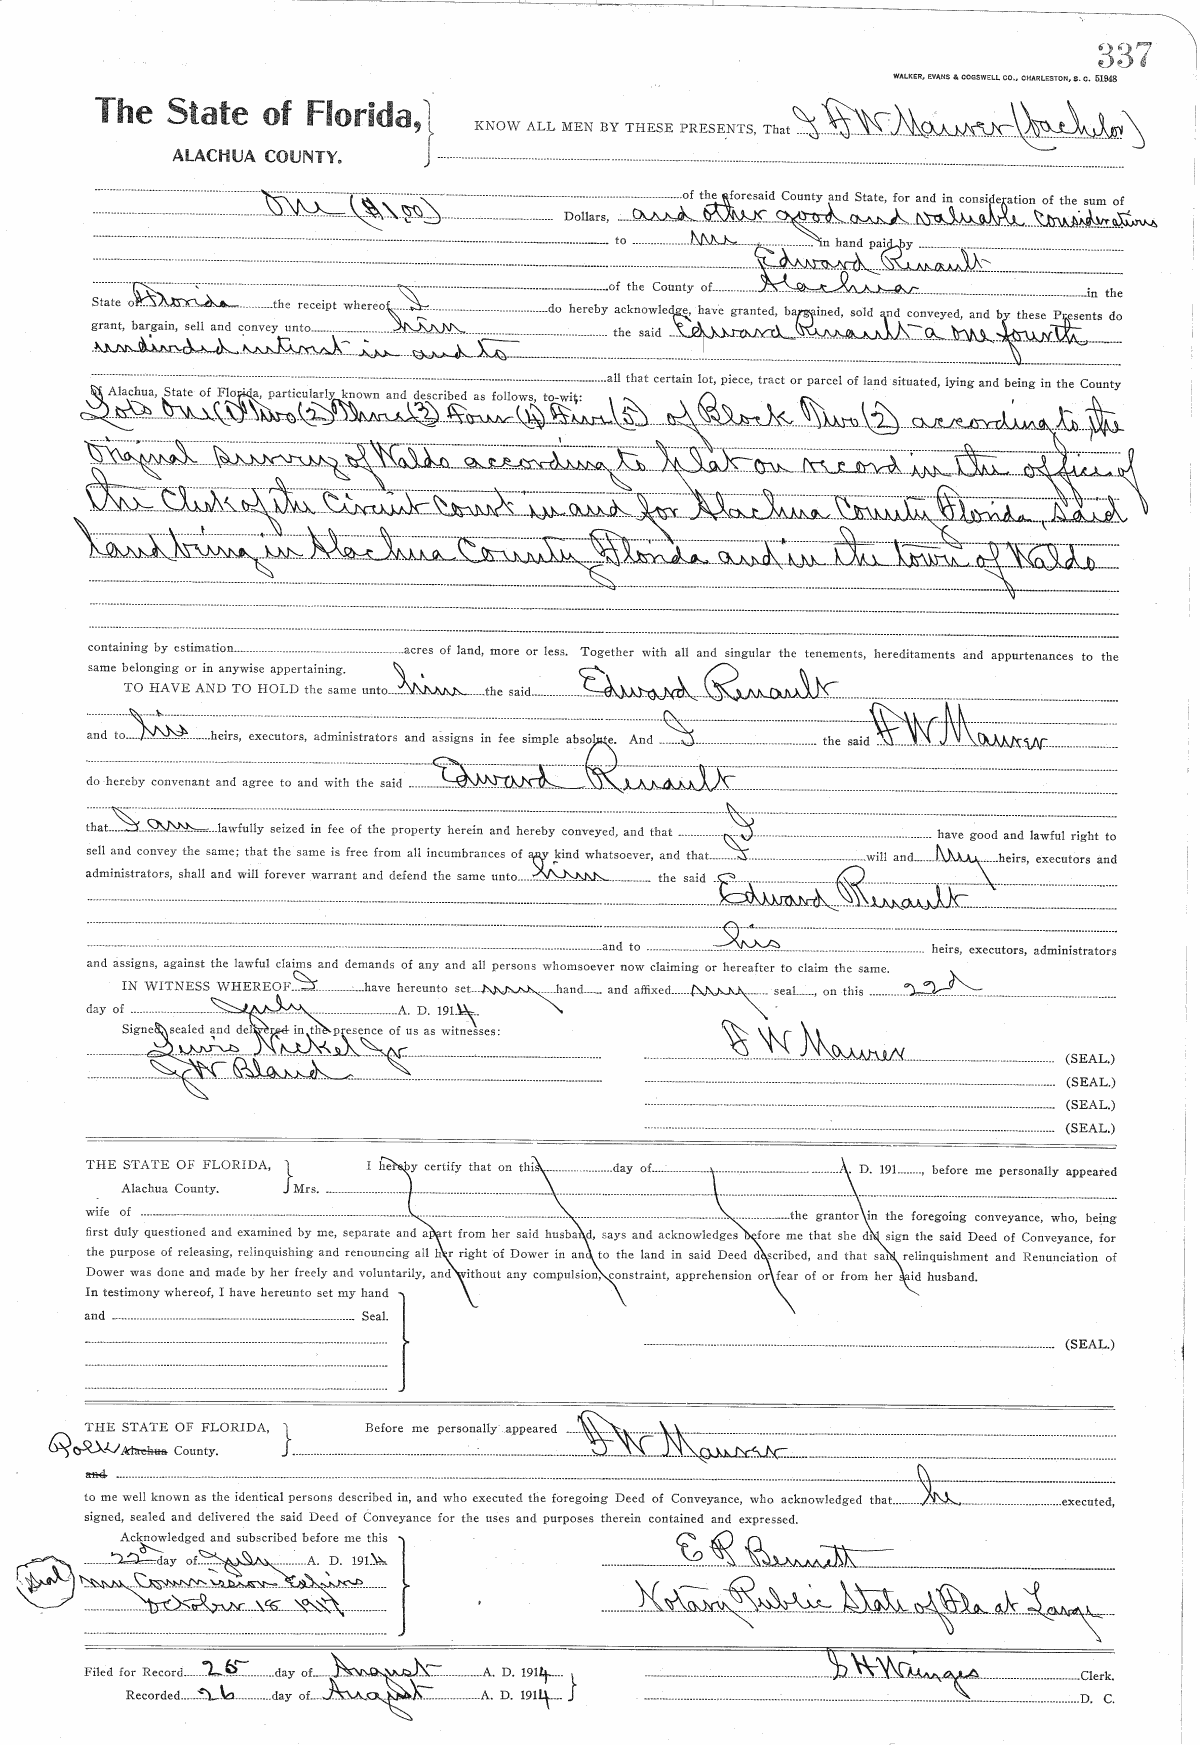 337
WALKER, EVANS & COGSWELL CO., CHARLESTON, S. C. 51948
The State of Florida,
ALACHUA COUNTY.
KNOW ALL MEN BY THESE PRESENTS, That I H W Maurer (bachelor)
of the aforesaid County and State, for and in consideration of the sum of
One ($1.00) Dollars, and other good and valuable considerations
to me in hand paid by
Edward Renault
of the County of Alachua in the
State of Florida the receipt whereof I do hereby acknowledge, have granted, bargained, sold and conveyed, and by these Presents do
grant, bargain, sell and convey unto him the said Edward Renault a one fourth
undivided interest in and to
all that certain lot, piece, tract or parcel of land situated, lying and being in the County
of Alachua, State of Florida, particularly known and described as follows, to-wit:
Lots One (1) Two (2) Three (3) Four (4) Five (5) of Block Two (2) according to the
Original survey of Waldo according to plat on record in the office of
the Clerk of the Circuit Court in and for Alachua County Florida, said
land being in Alachua County Florida and in the town of Waldo
containing by estimation acres of land, more or less. Together with all and singular the tenements, hereditaments and appurtenances to the
same belonging or in anywise appertaining.
TO HAVE AND TO HOLD the same unto him the said Edward Renault
and to his heirs, executors, administrators and assigns in fee simple absolute. And I the said H W Maurer
do hereby convenant and agree to and with the said Edward Renault
that I am lawfully seized in fee of the property herein and hereby conveyed, and that I have good and lawful right to
sell and convey the same; that the same is free from all incumbrances of any kind whatsoever, and that I will and my heirs, executors and
administrators, shall and will forever warrant and defend the same unto him the said
Edward Renault
and to his heirs, executors, administrators
and assigns, against the lawful claims and demands of any and all persons whomsoever now claiming or hereafter to claim the same.
IN WITNESS WHEREOF I have hereunto set my hand and affixed my seal, on this 22d
day of July A. D. 1914.
Signed sealed and delivered in the presence of us as witnesses:
Lewis Nickel Jr
J W Bland
H W Maurer (SEAL.)
(SEAL.)
(SEAL.)
(SEAL.)
THE STATE OF FLORIDA,
Alachua County.
I hereby certify that on this day of A. D. 191 , before me personally appeared
Mrs.
wife of the grantor in the foregoing conveyance, who, being
first duly questioned and examined by me, separate and apart from her said husband, says and acknowledges before me that she did sign the said Deed of Conveyance, for
the purpose of releasing, relinquishing and renouncing all her right of Dower in and to the land in said Deed described, and that said relinquishment and Renunciation of
Dower was done and made by her freely and voluntarily, and without any compulsion, constraint, apprehension or fear of or from her said husband.
In testimony whereof, I have hereunto set my hand
and Seal.
(SEAL.)
THE STATE OF FLORIDA,
Polk Alachua County.
Before me personally appeared H W Maurer
and
to me well known as the identical persons described in, and who executed the foregoing Deed of Conveyance, who acknowledged that he executed,
signed, sealed and delivered the said Deed of Conveyance for the uses and purposes therein contained and expressed.
Acknowledged and subscribed before me this
22d day of July A. D. 1914
Seal My Commission Expires
October 18 1917
E P Bennett
Notary Public State of Fla at Large
Filed for Record 25 day of August A. D. 1914
Recorded 26 day of August A. D. 1914
S H Wienges Clerk.
D. C.